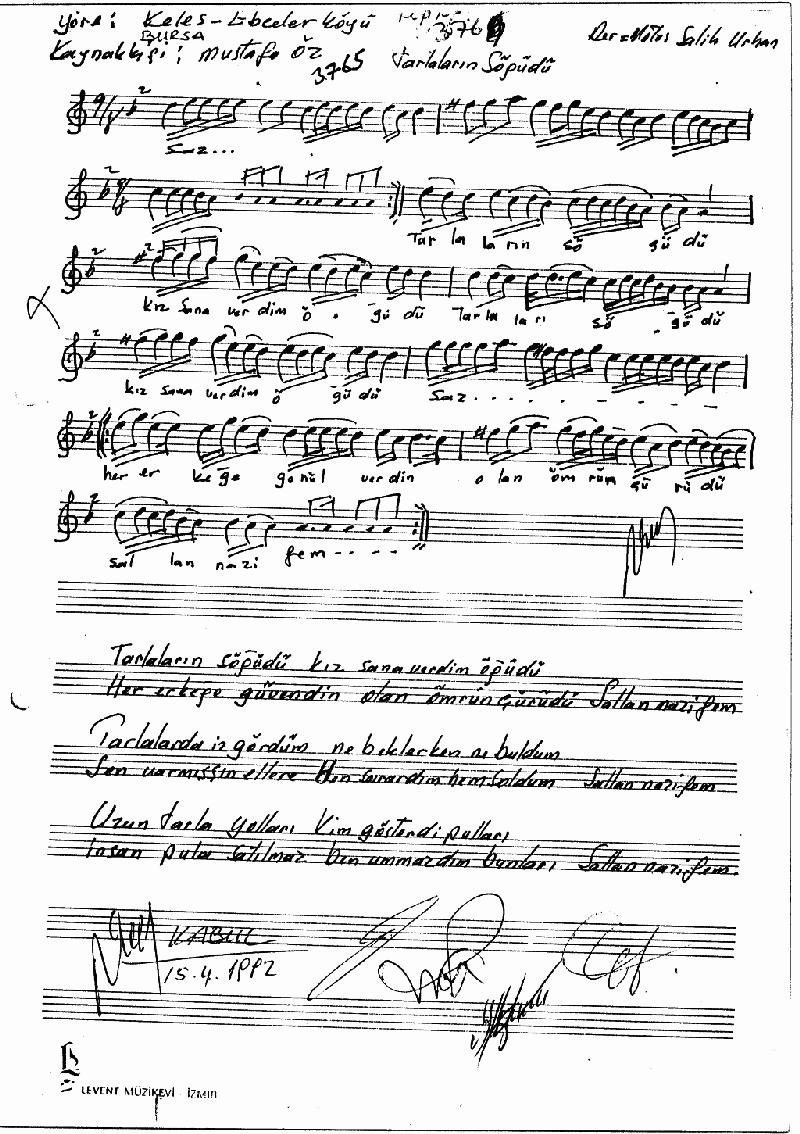 Yöre: Keles-Ebceler köyü
BURSA
3764
Der=Notos Salih Urhan
Kaynakkişi: Mustafa ÖZ
3765
Tarlaların Söğüdü
Saz...
Tar la la rın sö ğü dü
kız sana ver dim ö . ğü dü Tar la la rı sö - ğü dü
kız sana verdim ö ğü dü Saz . . . . - - - - - -
her er ke ğe gönül verdin o lan öm rüm çü rü dü
sal lan nazi fem - - - -
Tarlaların söğüdü kız sana verdim öğüdü
Her erkeğe güvendin olan ömrün çürüdü Sallan nazifem
Tarlalarda iz gördüm ne beklerken ne buldum
Sen varmışsın ellere Hem sarardım hem soldum Sallan nazifem
Uzun tarla yolları kim gösterdi pulları
insan pula satılmaz ben ummazdım bunları Sallan nazifem.
KABUL
15.4.1992
LEVENT MÜZİKEVİ - İZMİR